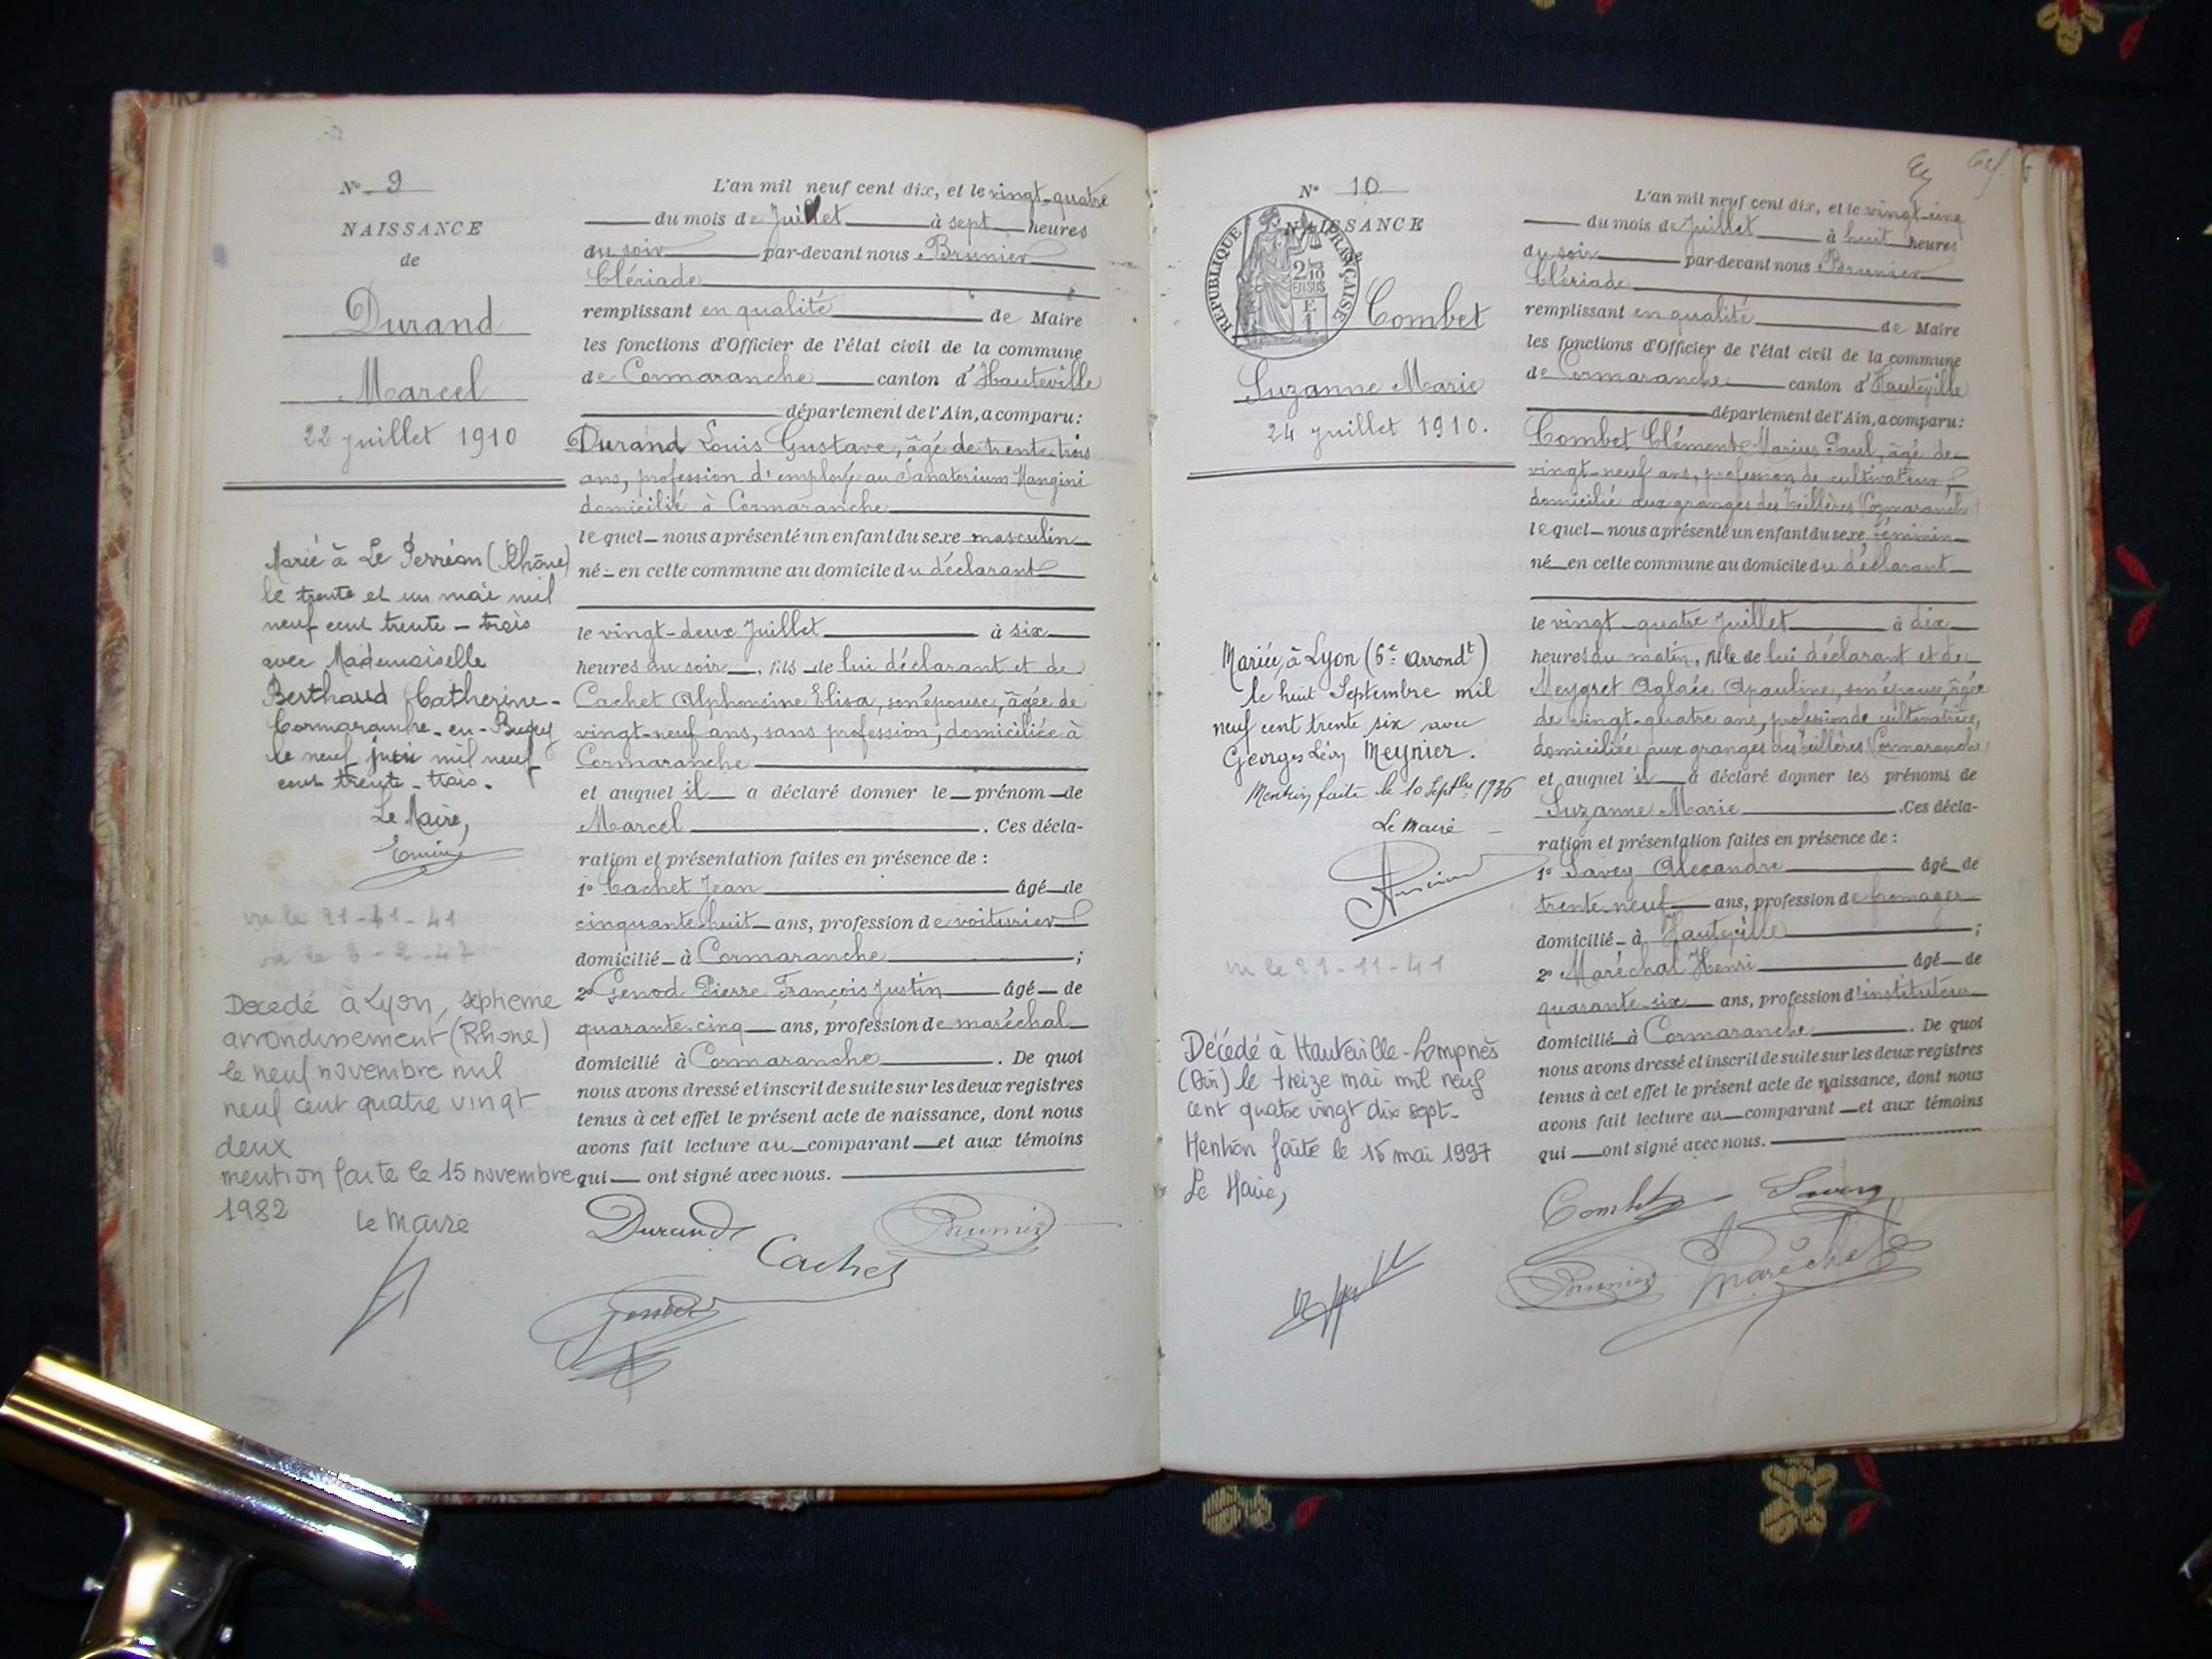 N° 9
NAISSANCE
de
Durand
Marcel
22 Juillet 1910
Marié à Le Perréon (Rhône)
le trente et un mai mil
neuf cent trente-trois
avec Mademoiselle
Berthaud Catherine-
Cormaranche-en-Bugey
le neuf juin mil neuf
cent trente-trois.
Le Maire,
vu le 21-11-41
vu le 3-2-47
Décédé à Lyon, septieme
arrondissement (Rhone)
le neuf novembre mil
neuf cent quatre vingt
deux
mention faite le 15 novembre
1982
Le Maire
L'an mil neuf cent dix, et le vingt-quatre
du mois de Juillet à sept heures
du soir par-devant nous Brunier
Clériade
remplissant en qualité de Maire
les fonctions d'Officier de l'état civil de la commune
de Cormaranche canton d'Hauteville
département de l'Ain, a comparu:
Durand Louis Gustave, âgé de trente-trois
ans, profession d'employé au Sanatorium Mangini
domicilié à Cormaranche
lequel nous a présenté un enfant du sexe masculin
né en cette commune au domicile du déclarant
le vingt-deux Juillet à six
heures du soir, fils de lui déclarant et de
Cachet Alphonsine Elisa, son épouse, âgée de
vingt-neuf ans, sans profession, domiciliée à
Cormaranche
et auquel il a déclaré donner le prénom de
Marcel. Ces décla-
ration et présentation faites en présence de :
1° Cachet Jean âgé de
cinquante-huit ans, profession de voiturier
domicilié à Cormaranche ;
2° Genod Pierre François Justin âgé de
quarante-cinq ans, profession de maréchal
domicilié à Cormaranche. De quoi
nous avons dressé et inscrit de suite sur les deux registres
tenus à cet effet le présent acte de naissance, dont nous
avons fait lecture au comparant et aux témoins
qui ont signé avec nous.
Durand
Brunier
Cachet
Genod
N° 10
NAISSANCE
de
RÉPUBLIQUE FRANÇAISE
2/10
EN SUS
Combet
Suzanne Marie
24 Juillet 1910.
Mariée à Lyon (6e arrondt)
le huit Septembre mil
neuf cent trente six avec
Georges Léon Meynier.
Mention faite le 10 Septbre 1936
Le Maire
vu le 21-11-41
Décédé à Hauteville-Lompnès
(Ain) le treize mai mil neuf
cent quatre vingt dix sept-
Mention faite le 15 mai 1997
Le Maire,
L'an mil neuf cent dix, et le vingt-cinq
du mois de Juillet à huit heures
du soir par-devant nous Brunier
Clériade
remplissant en qualité de Maire
les fonctions d'Officier de l'état civil de la commune
de Cormaranche canton d'Hauteville
département de l'Ain, a comparu:
Combet Clément Marius Paul, âgé de
vingt-neuf ans, profession de cultivateur,
domicilié aux granges des (Cormaranche)
lequel nous a présenté un enfant du sexe féminin
né en cette commune au domicile du déclarant
le vingt-quatre Juillet à dix
heures du matin, fille de lui déclarant et de
Meygret Aglaée Apauline, son épouse, âgée
de vingt-quatre ans, profession de cultivatrice,
domiciliée aux granges des (Cormaranche)
et auquel il a déclaré donner les prénoms de
Suzanne Marie. Ces décla-
ration et présentation faites en présence de :
1° Savey Alexandre âgé de
trente-neuf ans, profession de fromager
domicilié à Hauteville ;
2° Maréchal Henri âgé de
quarante-six ans, profession d'instituteur
domicilié à Cormaranche. De quoi
nous avons dressé et inscrit de suite sur les deux registres
tenus à cet effet le présent acte de naissance, dont nous
avons fait lecture au comparant et aux témoins
qui ont signé avec nous.
Combet Savey
Brunier Maréchal